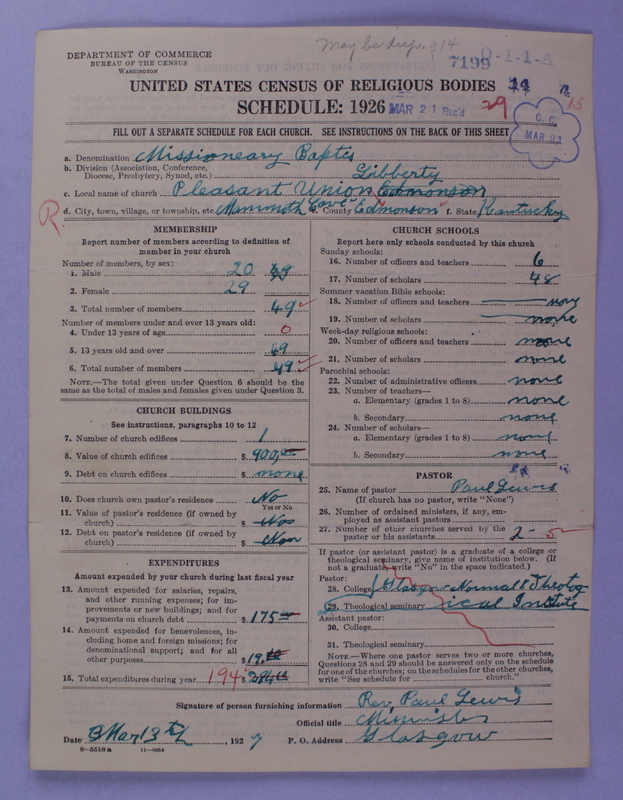 May be dup. 914
DEPARTMENT OF COMMERCE
BUREAU OF THE CENSUS
WASHINGTON
7199 0-1-1-A
UNITED STATES CENSUS OF RELIGIOUS BODIES
SCHEDULE: 1926
MAR 21 Rec'd 29 15
FILL OUT A SEPARATE SCHEDULE FOR EACH CHURCH. SEE INSTRUCTIONS ON THE BACK OF THIS SHEET
C. C.
MAR 21
a. Denomination Missioneary Baptis
b. Division (Association, Conference, Diocese, Presbytery, Synod, etc.) Libberty
c. Local name of church Pleasant Union Edmonson
R d. City, town, village, or township, etc. Mammoth Cave e. County Edmonson f. State Kentucky
MEMBERSHIP
Report number of members according to definition of
member in your church
Number of members, by sex:
1. Male 20 49
2. Female 29
3. Total number of members 49
Number of members under and over 13 years old:
4. Under 13 years of age 0
5. 13 years old and over 49
6. Total number of members 49
NOTE.—The total given under Question 6 should be the
same as the total of males and females given under Question 3.
CHURCH BUILDINGS
See instructions, paragraphs 10 to 12
7. Number of church edifices 1
8. Value of church edifices $ 900.00
9. Debt on church edifices $ none
10. Does church own pastor's residence No
Yes or No
11. Value of pastor's residence (if owned by
church) $
12. Debt on pastor's residence (if owned by
church) $
EXPENDITURES
Amount expended by your church during last fiscal year
13. Amount expended for salaries, repairs,
and other running expenses; for im-
provements or new buildings; and for
payments on church debt $ 175
14. Amount expended for benevolences, in-
cluding home and foreign missions; for
denominational support; and for all
other purposes $ 19.
15. Total expenditures during year 194 $
CHURCH SCHOOLS
Report here only schools conducted by this church
Sunday schools:
16. Number of officers and teachers 6
17. Number of scholars 48
Summer vacation Bible schools:
18. Number of officers and teachers none
19. Number of scholars none
Week-day religious schools:
20. Number of officers and teachers none
21. Number of scholars none
Parochial schools:
22. Number of administrative officers none
23. Number of teachers—
a. Elementary (grades 1 to 8) none
b. Secondary none
24. Number of scholars—
a. Elementary (grades 1 to 8) none
b. Secondary none
PASTOR
25. Name of pastor Paul Lewis
(If church has no pastor, write "None")
26. Number of ordained ministers, if any, em-
ployed as assistant pastors
27. Number of other churches served by the
pastor or his assistants 2 - 5
If pastor (or assistant pastor) is a graduate of a college or
theological seminary, give name of institution below. (If
not a graduate, write "No" in the space indicated.)
Pastor:
28. College Glasgow Normal & Theolog
29. Theological seminary ical Institute
Assistant pastor:
30. College
31. Theological seminary
NOTE.—Where one pastor serves two or more churches,
Questions 28 and 29 should be answered only on the schedule
for one of the churches; on the schedules for the other churches,
write "See schedule for church."
Signature of person furnishing information Rev. Paul Lewis
Official title Minister
Date Mar 13th, 1927 P. O. Address Glasgow
8—5518 a 11—9064